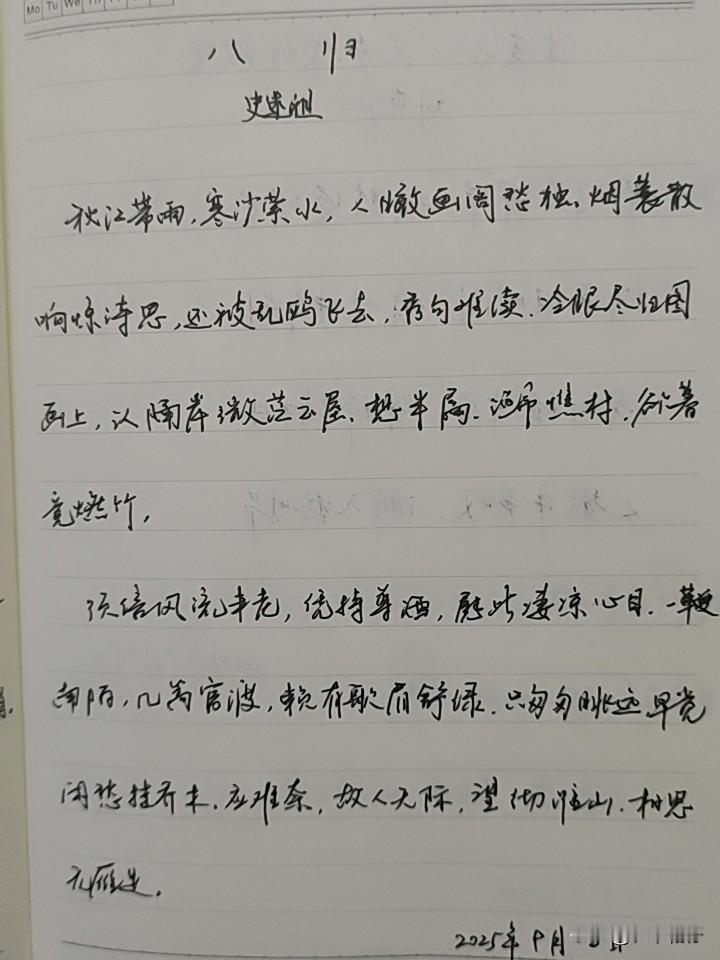 Mo Tu We Th
八 归
史达祖
秋江带雨，寒沙萦水，人瞰画阁愁独。烟蓑散
响惊诗思，还被乱鸥飞去，秀句难续。冷眼尽归图
画上，认隔岸微茫云屋。想半属、渔市樵村，欲暮
竞燃竹。
须信风流未老，凭持尊酒，慰此凄凉心目。一鞭
南陌，几篙官渡，赖有歌眉舒绿。只匆匆眺远早觉
闲愁挂乔木。应难奈，故人天际，望彻淮山，相思
无雁足。
2025年9月